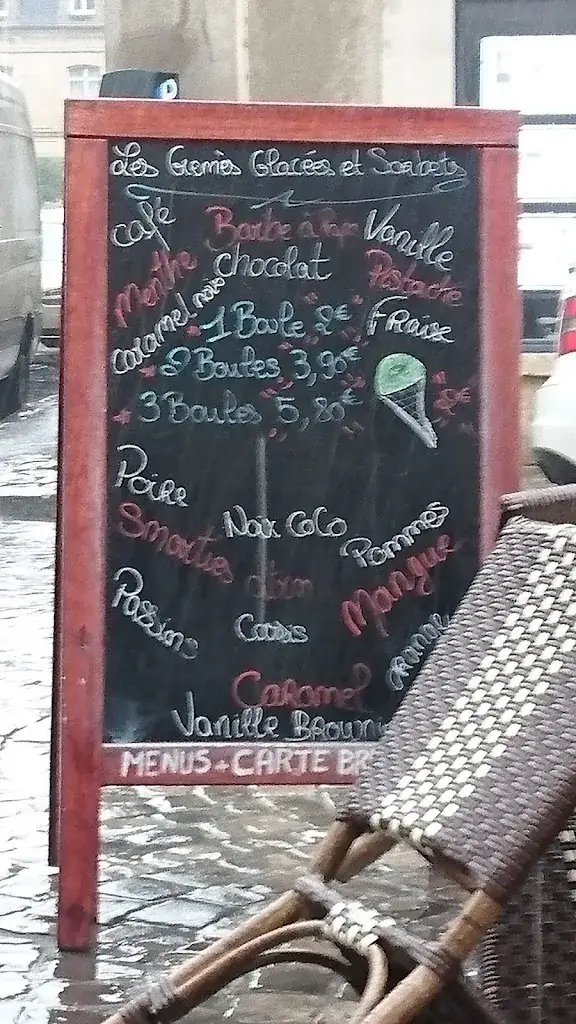 Les Crèmes Glacées et Sorbets
café Barbe à Papa Vanille
Menthe chocolat Pistache
caramel
1 Boule 2€ Fraise
2 Boules 3,90€
3 Boules 5,80€
Poire
Noix Coco Pommes
Smarties Mangue
Passions Cassis
Orange
Caramel
Vanille Browni
MENUS - CARTE BR